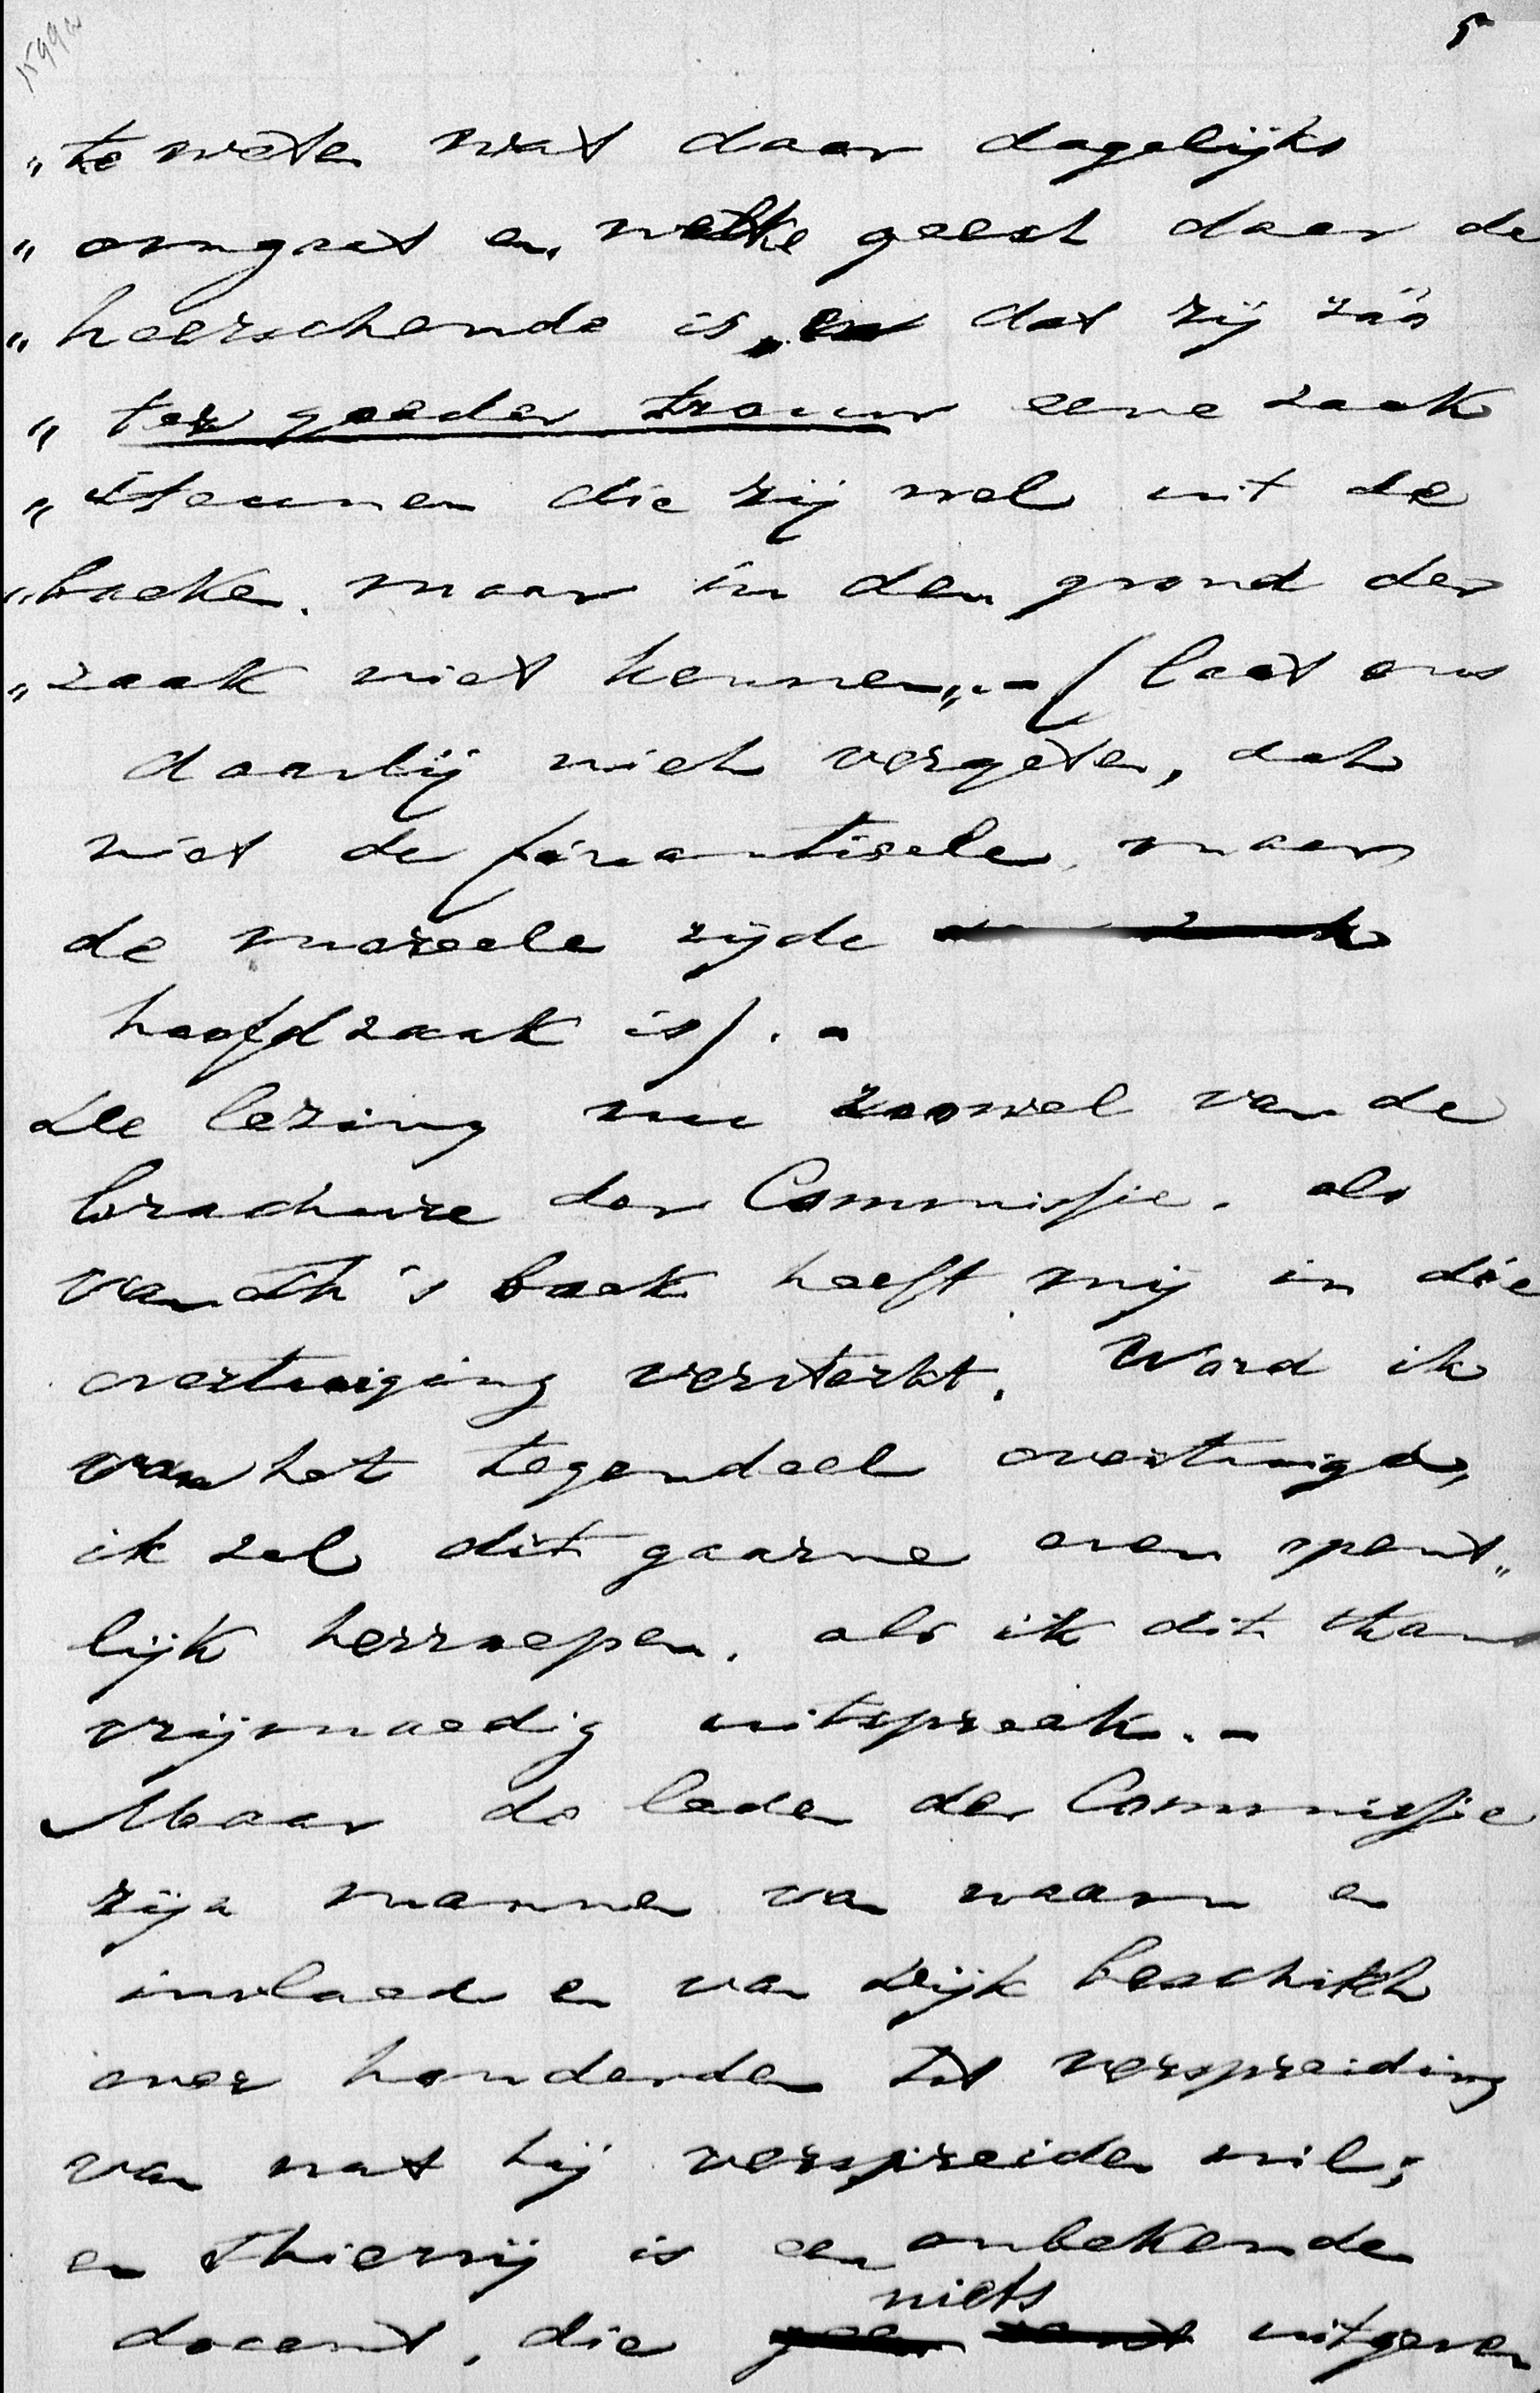 1599a
5
„te weten wat daar dagelijks
„omgaat en welke geest daar de
„heerschende is, en dat zij zóó
„ter goeder trouw eene zaak
„steunen die zij wel uit de
„boeken, maar in den grond der
„zaak niet kennen„.- (laat ons
daarbij niet vergeten, dat
niet de finantieele, maar
de moreele zijde
hoofdzaak is). -
De lezing nu zoowel van de
brochure der Commissie, als
van Th's boek heeft mij in die
overtuiging versterkt. Word ik
van het tegendeel overtuigd,
ik zal dit gaarne even open„
lijk herroepen, als ik dit thans
vrijmoedig uitspreek. -
Maar de leden der Commissie
zijn mannen van naam en
invloed en van Dijk beschikt
over honderden tot verspreiding
van wat hij verspreiden wil;
en Thierrij is een onbekende
docent, die geen cent niets uitgeven